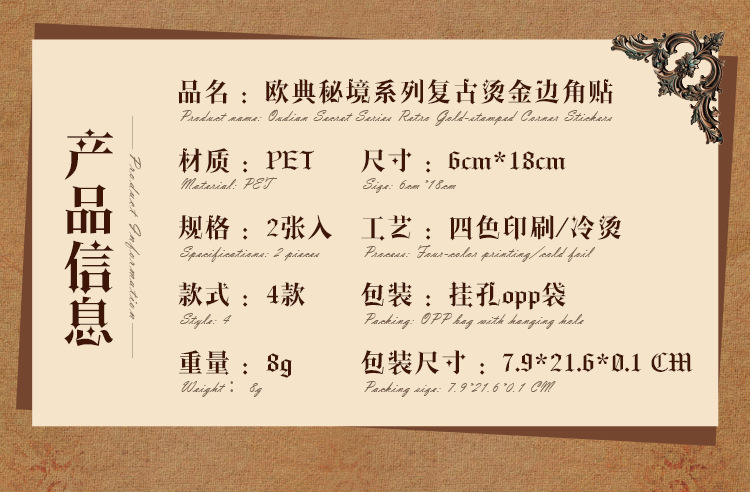 产品信息
Product Information
品名：欧典秘境系列复古烫金边角贴
Product name: Oudian Secret Series Retro Gold-stamped Corner Stickers
材质：PET
Material: PET
尺寸：6cm*18cm
Size: 6cm*18cm
规格：2张入
Specifications: 2 pieces
工艺：四色印刷/冷烫
Process: Four-color printing/cold foil
款式：4款
Style: 4
包装：挂孔opp袋
Packing: OPP bag with hanging hole
重量：8g
Weight： 8g
包装尺寸：7.9*21.6*0.1 CM
Packing size: 7.9*21.6*0.1 CM